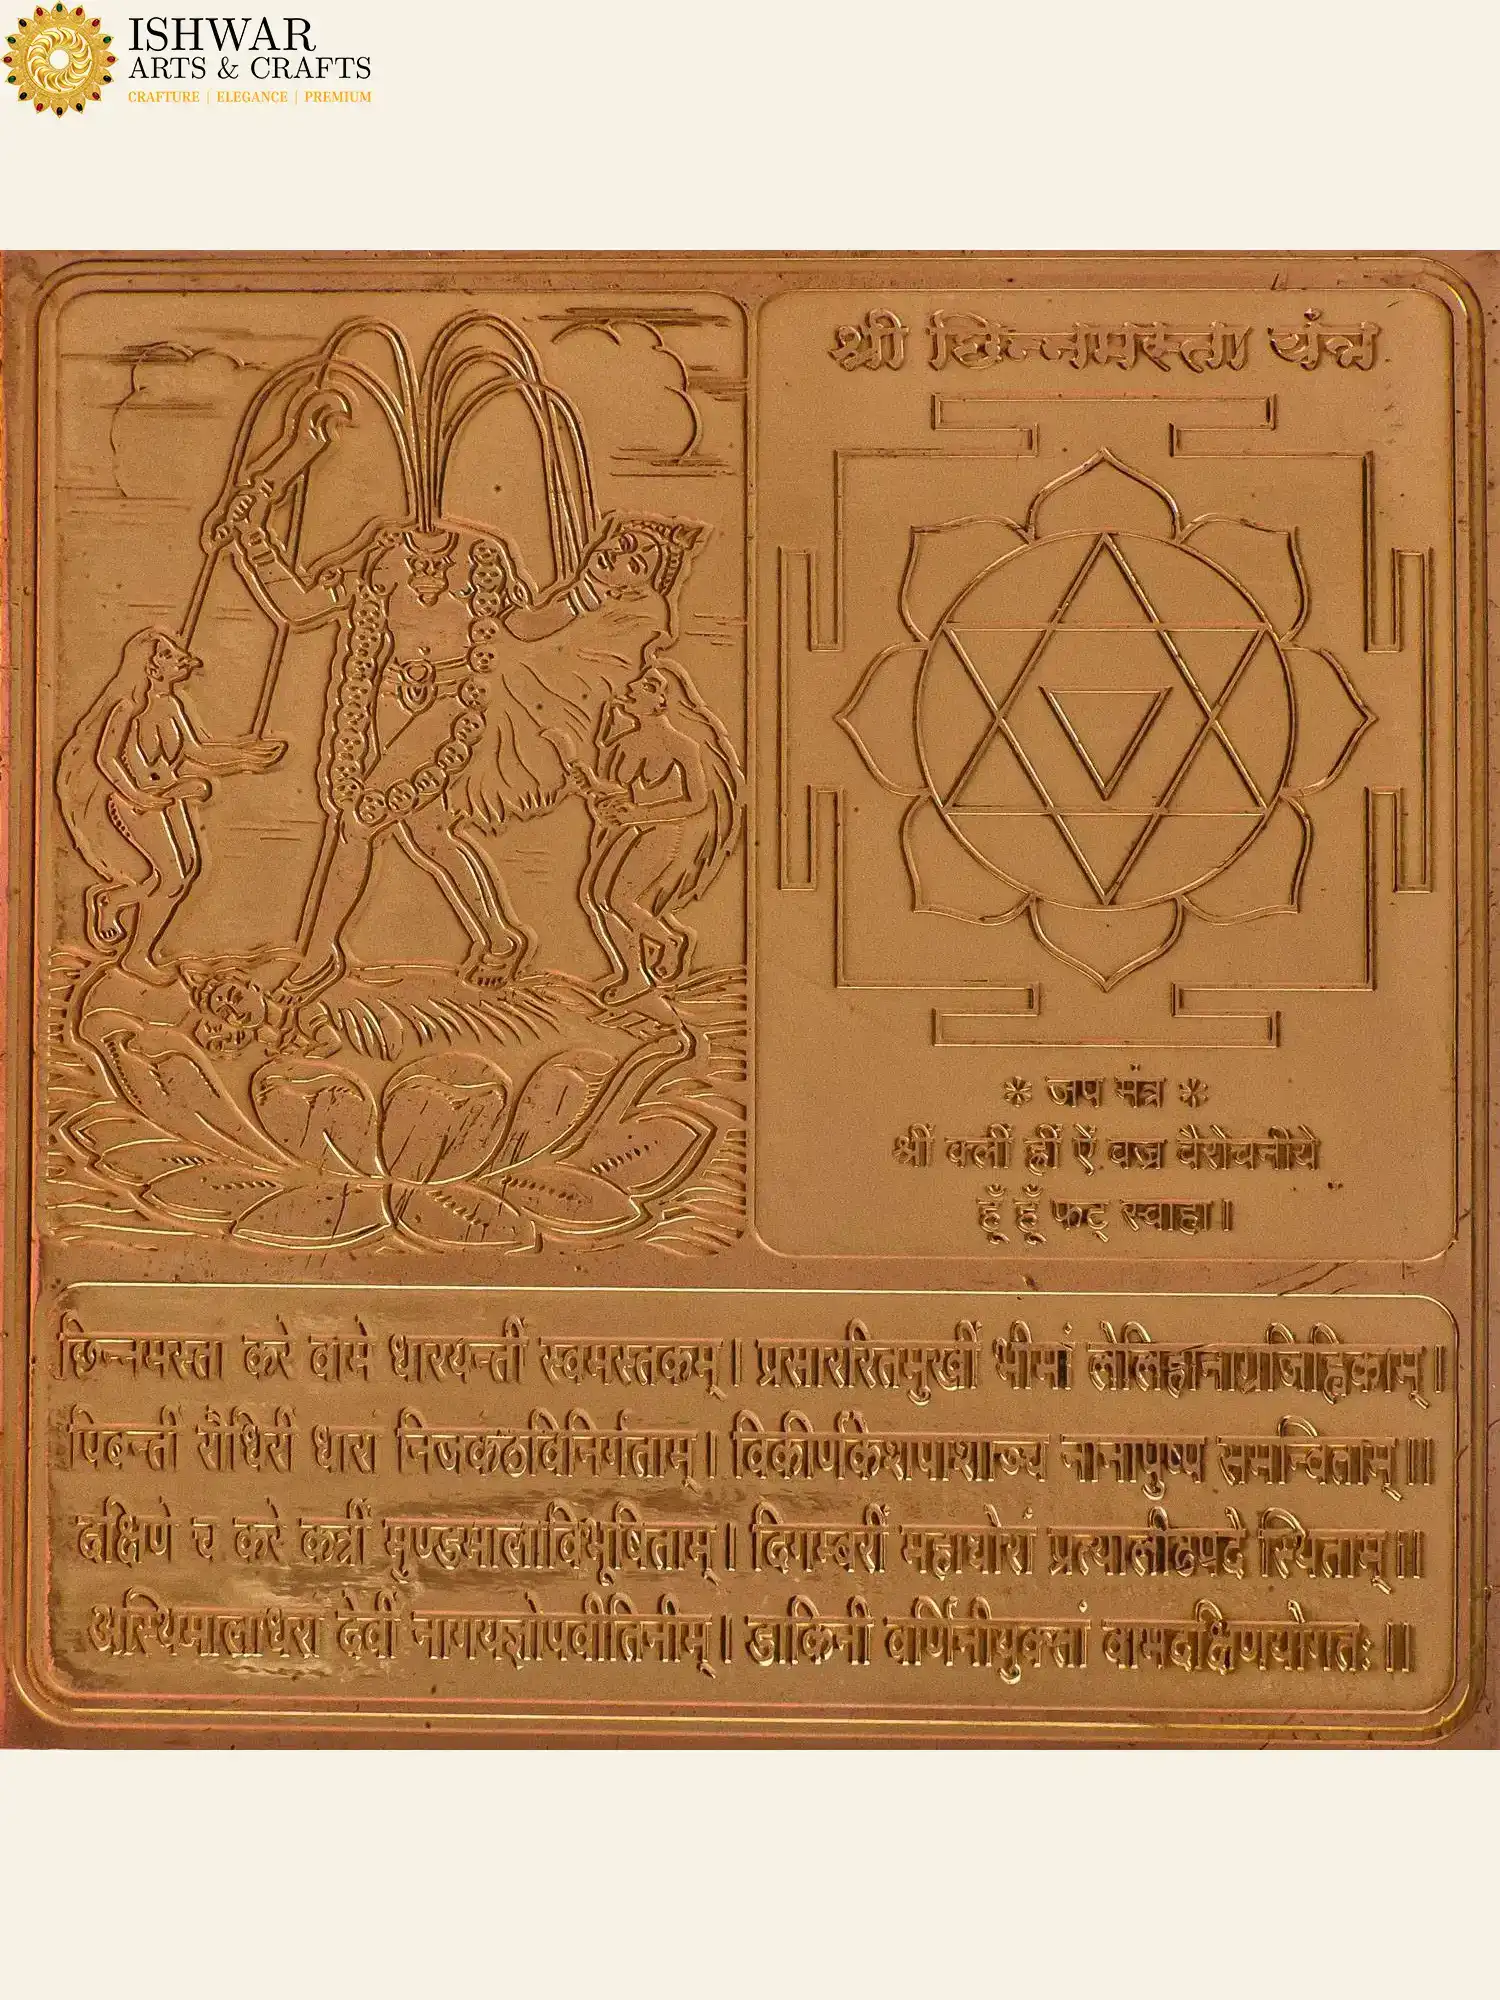 ISHWAR
ARTS & CRAFTS
CRAFTURE | ELEGANCE | PREMIUM
श्री छिन्नमस्ता यंत्र
* जप मंत्र *
श्रीं क्लीं ह्रीं ऐं वज्र वैरोचनीये
हूँ हूँ फट् स्वाहा।
छिन्नमस्ता करे वामे धारयन्तीं स्वमस्तकम्। प्रसाररितमुखीं भीमां लेलिहानाग्रजिह्विकाम्।
पिबन्तीं रौधिरीं धारां निजकंठविनिर्गताम्। विकीर्णकेशपाशाञ्च नानापुष्प समन्विताम्॥
दक्षिणे च करे कर्त्रीं मुण्डमालाविभूषिताम्। दिगम्बरीं महाघोरां प्रत्यालीढपदे स्थिताम्॥
अस्थिमालाधरां देवीं नागयज्ञोपवीतिनीम्। डाकिनी वर्णिनीयुक्तां वामदक्षिणयोगतः॥